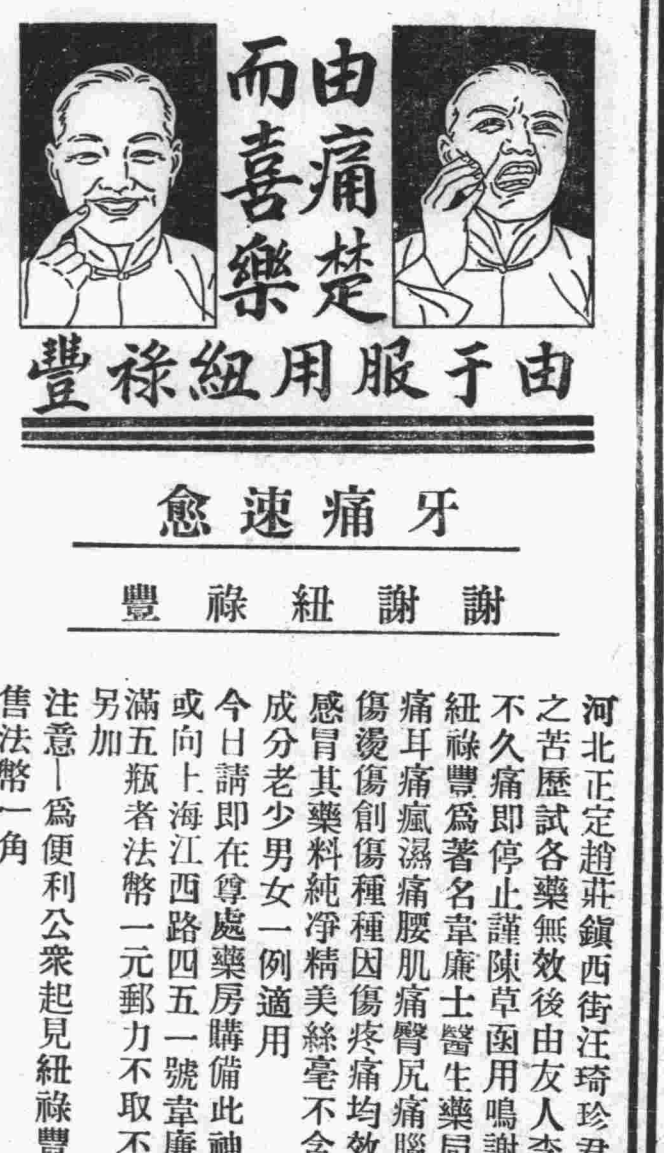 由痛楚
而喜樂
由于服用紐祿豐
牙痛速愈
謝謝紐祿豐
河北正定趙莊鎮西街汪琦珍君
之苦歷試各藥無效後由友人李
不久痛即停止謹陳草函用鳴謝
紐祿豐爲著名韋廉士醫生藥局
痛耳痛瘋濕痛腰肌痛臀尻痛腦
傷燙傷創傷種種因傷疼痛均效
感冒其藥料純凈精美絲毫不含
成分老少男女一例適用
今日請即在尊處藥房購備此神
或向上海江西路四五一號韋廉
滿五瓶者法幣一元郵力不取不
另加
注意—爲便利公衆起見紐祿豐
售法幣一角